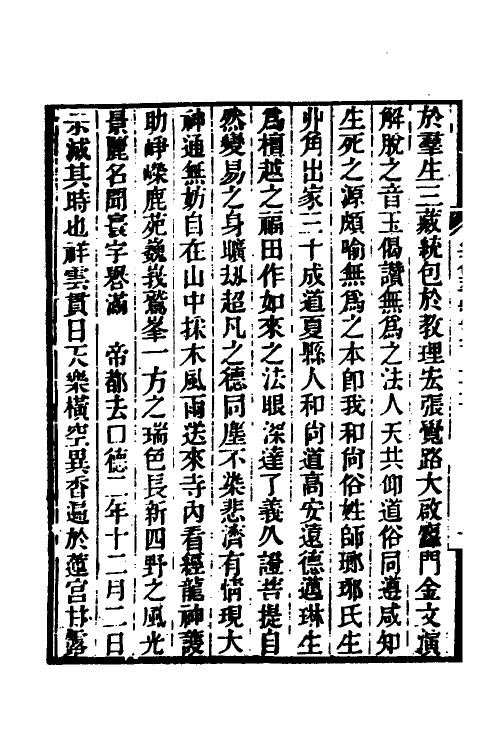 於羣生三藏統包於教理宏張覺路大啟靈門金文演
解脫之音玉偈讚無爲之法人天共仰道俗同遵咸知
生死之源頗喻無爲之本卽我和尙俗姓師瑯琊氏生
丱角出家三十成道夏縣人和尙道高安遠德邁琳生
爲檀越之福田作如來之法眼深達了義久證菩提自
然變易之身曠劫超凡之德同塵不染悲濟有情現大
神通無妨自在山中採木風雨送來寺內看經龍神護
助崢嶸鹿苑巍峩鷲峯一方之瑞色長新四野之風光
景麗名聞寰宇譽滿 帝都去口德二年十二月二日
示滅其時也祥雲貫日天樂橫空異香遍於蓮宮甘露